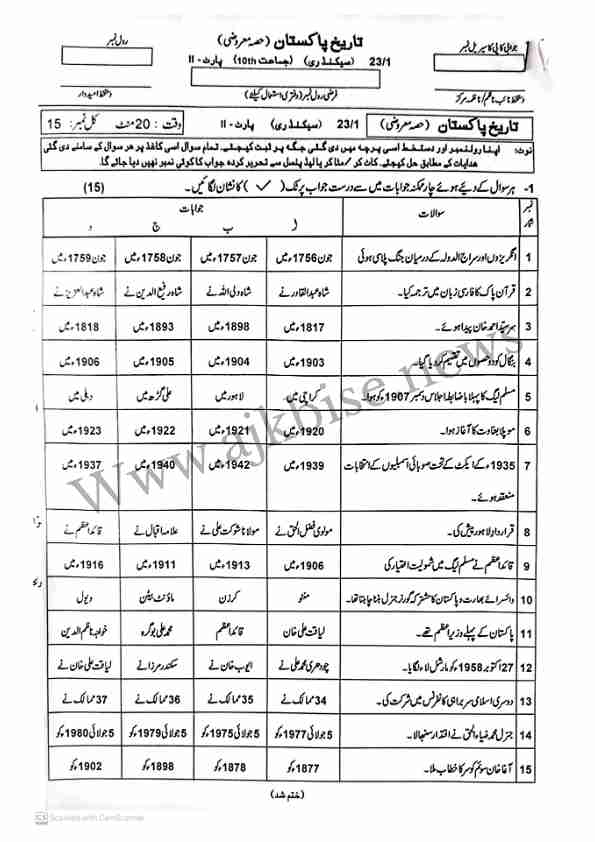 جوابی کاپی کا سیریل نمبر
تاریخ پاکستان (حصہ معروضی)
رول نمبر
23/1 (سیکنڈری) (جماعت 10th) پارٹ - II
دستخط نائب ناظم / ناظمہ مرکز
فرضی رول نمبر (دفتری استعمال کیلئے)
دستخط امیدوار
تاریخ پاکستان (حصہ معروضی) 23/1 (سیکنڈری) پارٹ - II وقت : 20 منٹ کل نمبر : 15
نوٹ: اپنا رولنمبر اور دستخط اسی پرچہ میں دی گئی جگہ پر ثبت کیجئے۔ تمام سوال اسی کاغذ پر ھر سوال کے سامنے دی گئی
ھدایات کے مطابق حل کیجئے۔ کاٹ کر / مٹا کر یا لیڈ پنسل سے تحریر کردہ جواب کا کوئی نمبر نہیں دیا جائے گا۔
1- ہر سوال کے دیئے ہوئے چار ممکنہ جوابات میں سے درست جواب پر ٹِک ( ✓ ) کا نشان لگائیں۔ (15)
نمبر شمار سوالات جوابات
ا ب ج د
1 انگریزوں اور سراج الدولہ کے درمیان جنگ پلاسی ہوئی جون 1756ء میں جون 1757ء میں جون 1758ء میں جون 1759ء میں
2 قرآن پاک کا فارسی زبان میں ترجمہ کیا۔ شاہ عبدالقادر نے شاہ ولی اللہ نے شاہ رفیع الدین نے شاہ عبدالعزیز نے
3 سرسید احمد خان پیدا ہوئے۔ 1817ء میں 1898ء میں 1893ء میں 1818ء میں
4 بنگال کو دو حصوں میں تقسیم کر دیا گیا۔ 1903ء میں 1904ء میں 1905ء میں 1906ء میں
5 مسلم لیگ کا پہلا باضابطہ اجلاس دسمبر 1907ء کو ہوا۔ کراچی میں لاہور میں علی گڑھ میں دہلی میں
6 موپلا بغاوت کا آغاز ہوا۔ 1920ء میں 1921ء میں 1922ء میں 1923ء میں
7 1935ء کے ایکٹ کے تحت صوبائی اسمبلیوں کے انتخابات 1939ء میں 1942ء میں 1940ء میں 1937ء میں
منعقد ہوئے۔
8 قرارداد لاہور پیش کی۔ مولوی فضل الحق نے مولانا شوکت علی نے علامہ اقبال نے قائداعظم نے
9 قائداعظم نے مسلم لیگ میں شمولیت اختیار کی 1906ء میں 1913ء میں 1911ء میں 1916ء میں
10 وائسرائے بھارت و پاکستان کا مشترکہ گورنر جنرل بننا چاہتا تھا۔ منٹو کرزن ماؤنٹ بیٹن ویول
11 پاکستان کے پہلے وزیراعظم تھے۔ لیاقت علی خان قائداعظم محمد علی بوگرہ خواجہ ناظم الدین
12 27 اکتوبر 1958ء کو مارشل لاء لگایا۔ چودھری محمد علی نے ایوب خان نے سکندر مرزا نے لیاقت علی خان نے
13 دوسری اسلامی سربراہی کانفرنس میں شرکت کی۔ 34 ممالک نے 35 ممالک نے 36 ممالک نے 37 ممالک نے
14 جنرل محمد ضیاء الحق نے اقتدار سنبھالا۔ 5 جولائی 1977ء کو 5 جولائی 1975ء کو 5 جولائی 1979ء کو 5 جولائی 1980ء کو
15 آغا خان سوئم کو سر کا خطاب ملا۔ 1877ء کو 1878ء کو 1898ء کو 1902ء کو
(ختم شد)
www.ajkbise.news
CS Scanned with CamScanner